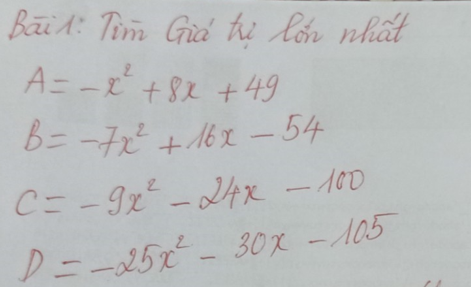 Bài 1: Tìm Giá trị lớn nhất
A = -x² + 8x + 49
B = -7x² + 16x - 54
C = -9x² - 24x - 100
D = -25x² - 30x - 105